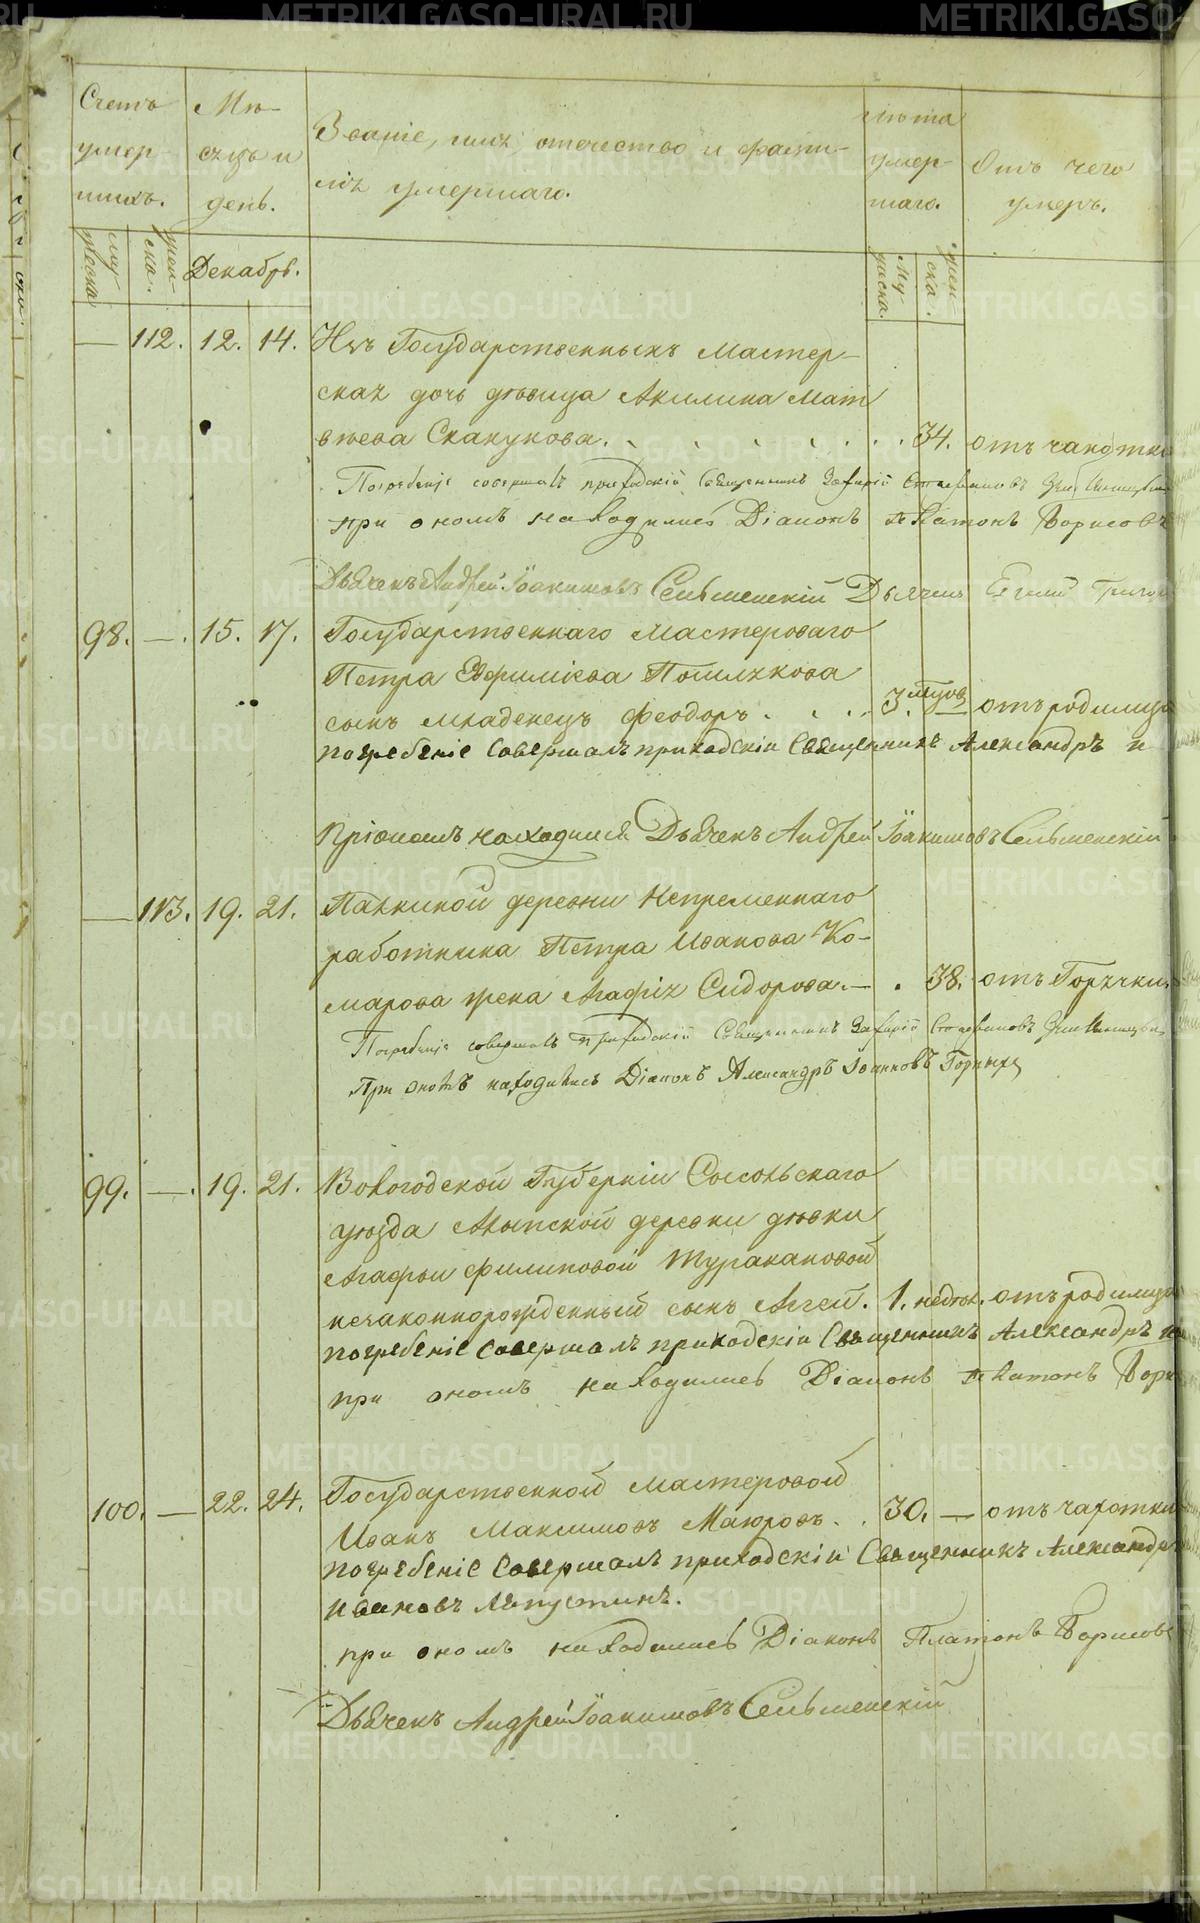 Счетъ умер-
шихъ.
Мѣ-
сяцъ и
день.
Званіе, имя, отечество и фами-
лія умершаго.
Лѣта
умер-
шаго.
Отъ чего
умеръ.
Му
жеска
жен
ска.
Декабрь.
Му
жеска.
жен
ска.
— 112. 12. 14. Изъ Государственныхъ Мастер-
ская дочь дѣвица Акилина Мат
вѣева Скакунова. 34. отъ чахотки
Погребеніе совершалъ приходскій Священникъ Захарій Стефановъ
при ономъ находились Діаконъ Платонъ Борисовъ
Дьячекъ Андрей Іоакимовъ Сельменскій Дьячекъ
98. —. 15. 17. Государственнаго Мастероваго
Петра Евфиміева Помлякова
сынъ младенецъ Феодоръ. 3. — отъ родимца
погребеніе совершалъ приходскіи Священникъ Александръ и
Пріономъ находился Дьячекъ Андрей Іоакимовъ Сельменскій
— 113. 19. 21. Палкиной деревни Непременнаго
работника Петра Иванова Ко-
марова жена Агафія Сидорова. — 38. отъ Горячки
Погребеніе совершалъ Приходскій Священникъ Захарій Стефановъ
При ономъ находились Діаконъ Александръ Іоанновъ Горныхъ
99. —. 19. 21. Вологодской Губерніи Сосольскаго
уѣзда деревни дѣвки
Агафьи Филиповой Туракановой
незаконнорожденный сынъ Аггей. 1. недѣл. отъ родимца
погребеніе совершалъ приходскіи Священникъ Александръ
при ономъ находились Діаконъ Платонъ Бори
100. — 22. 24. Государственной мастеровой
Иванъ Максимовъ Маюровъ. 30. — отъ чахотки
погребеніе совершалъ приходскіи Священникъ Александр
Ивановъ Ляпустинъ.
при ономъ находились Діаконъ Платонъ Борисовъ
Дьячекъ Андрей Іоакимовъ Сельменскій
METRIKI.GASO-URAL.RU